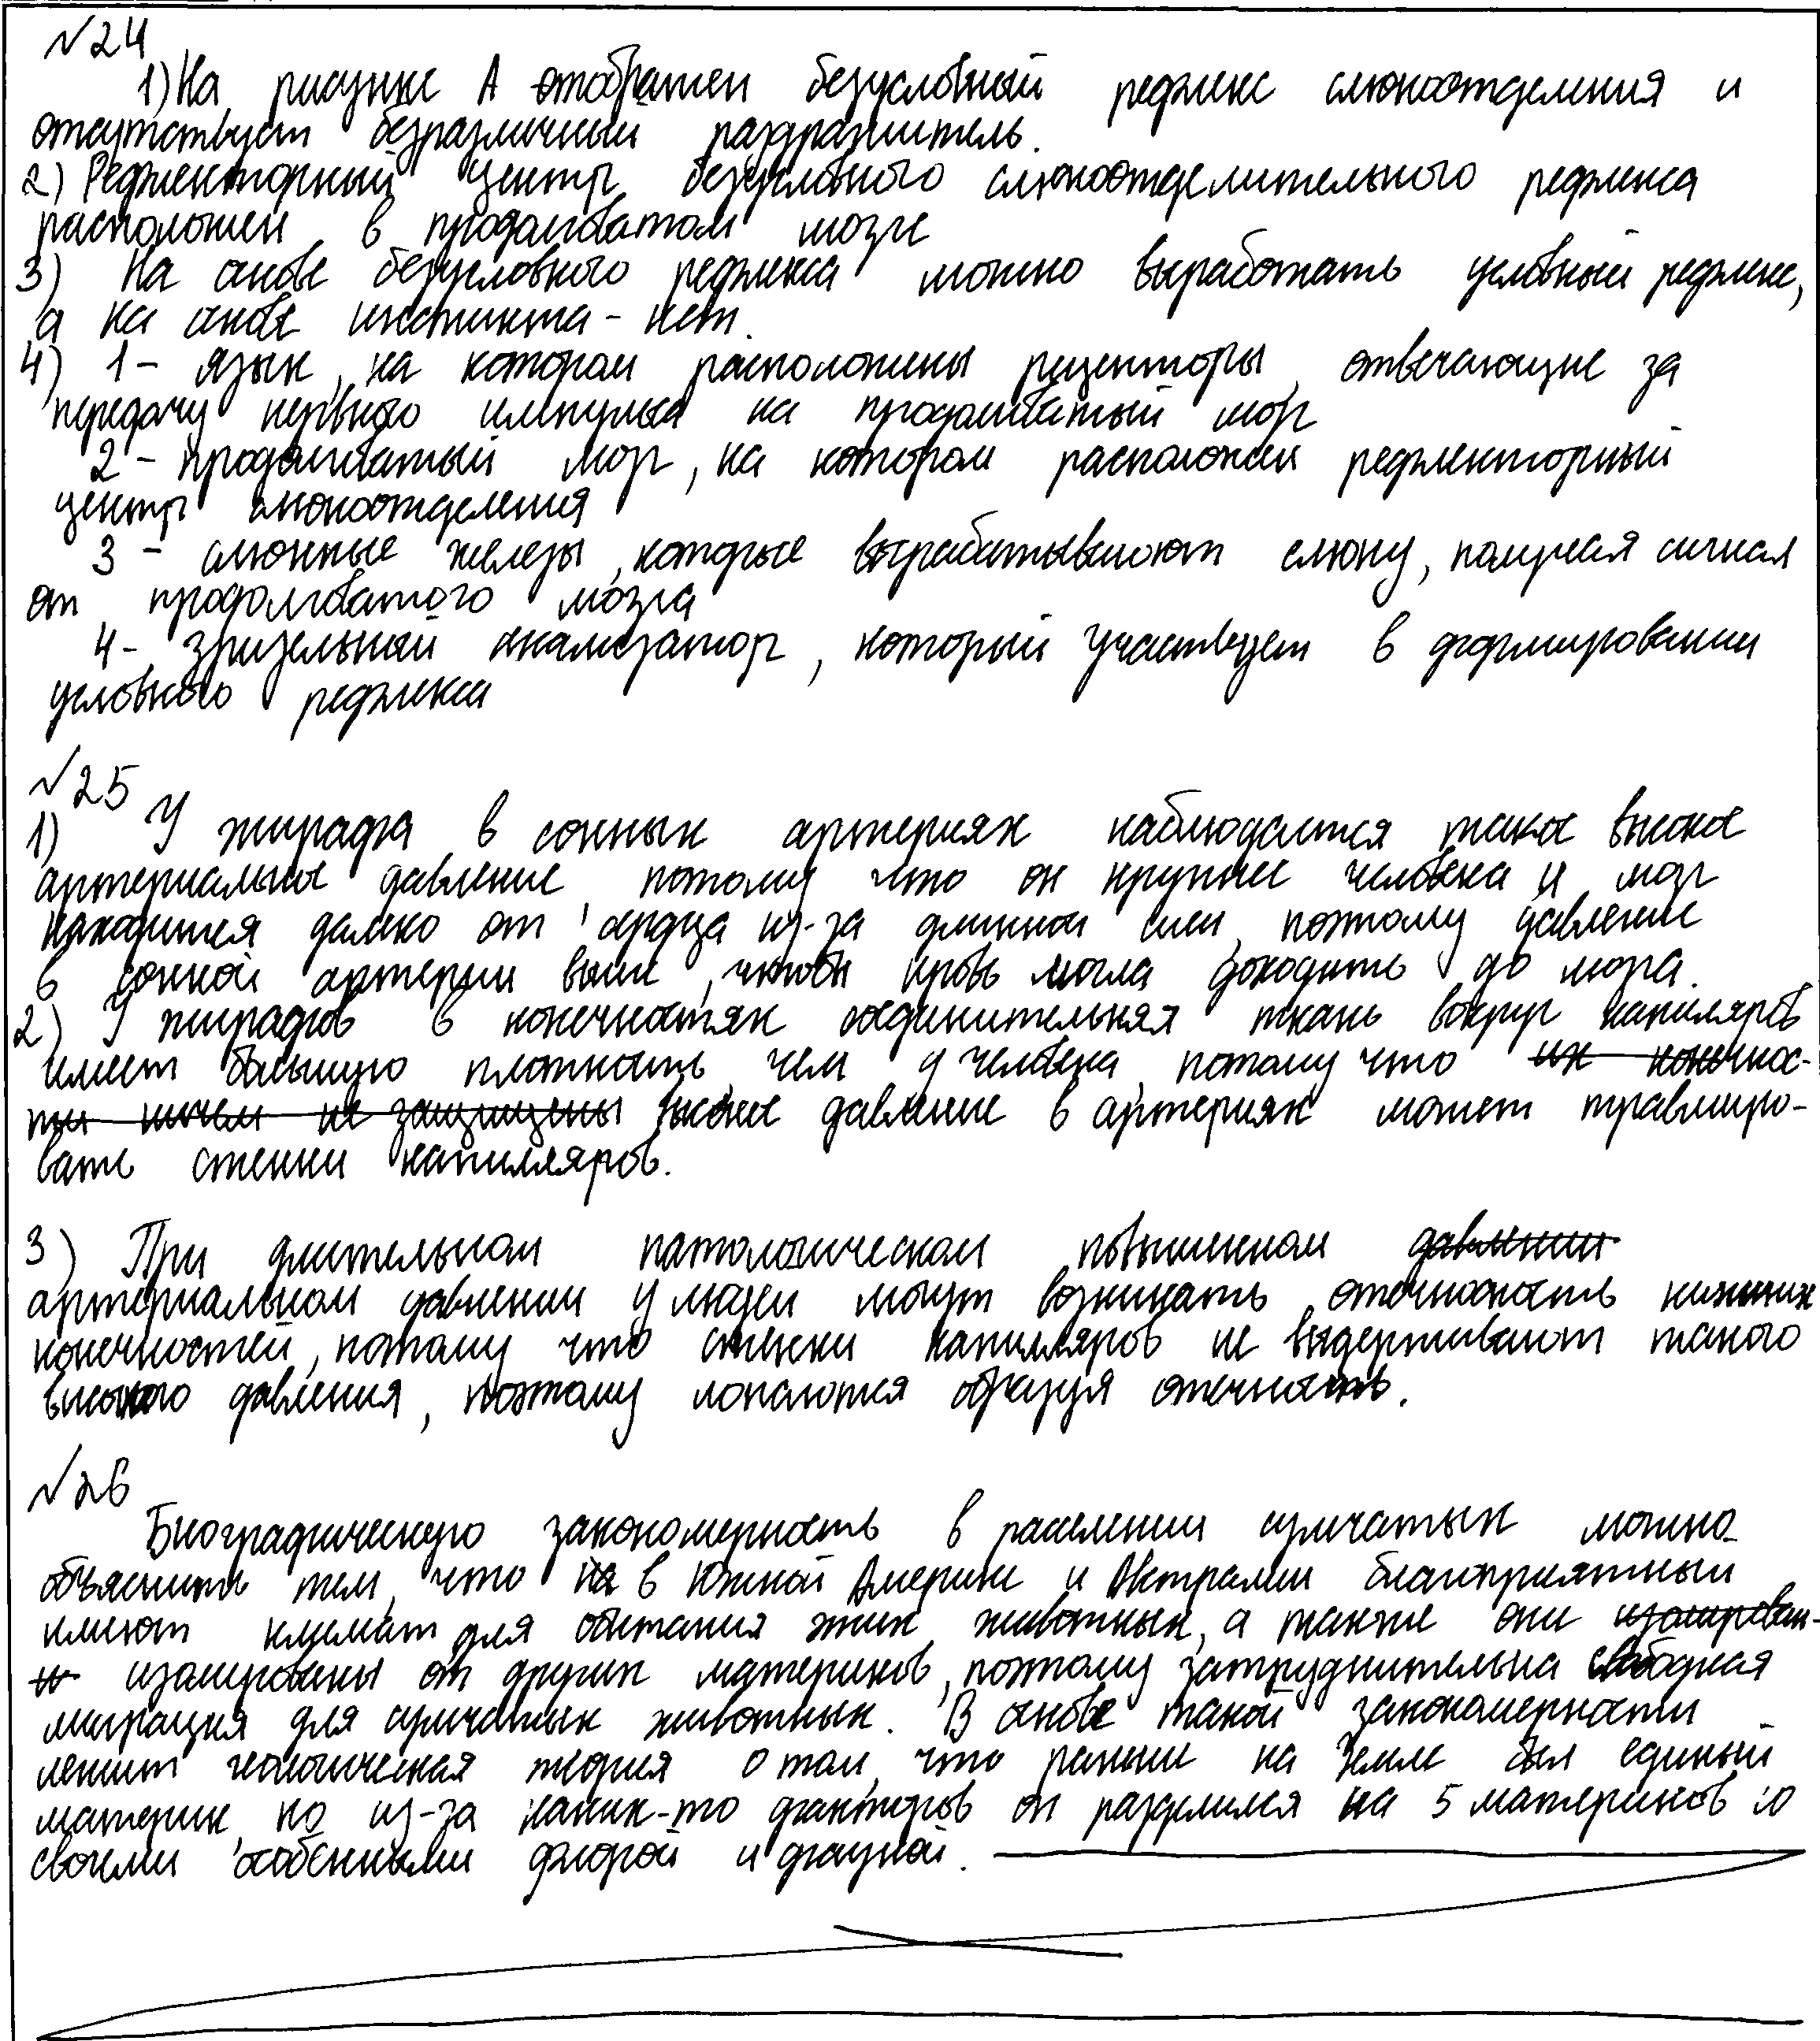 №24
1) На рисунке А отображен безусловный рефлекс слюноотделения и
отсутствует безразличный раздражитель.
2) Рефлекторный центр безусловного слюноотделительного рефлекса
расположен в продолговатом мозге
3) На основе безусловного рефлекса можно выработать условный рефлекс,
а на основе инстинкта - нет.
4) 1 - язык, на котором расположены рецепторы, отвечающие за
передачу нервного импульса на продолговатый мозг
2 - продолговатый мозг, на котором расположен рефлекторный
центр слюноотделения
3 - слюнные железы, которые вырабатывают слюну, получая сигнал
от продолговатого мозга
4 - зрительный анализатор, который участвует в формировании
условного рефлекса
№25
1) У жирафа в сонных артериях наблюдается такое высокое
артериальное давление, потому что он крупнее человека и мозг
находится далеко от сердца из-за длинной шеи, поэтому давление
в сонной артерии выше, чтобы кровь могла доходить до мозга.
2) У жирафов в конечностях соединительная ткань вокруг капиляров
имеет большую плотность, чем у человека, потому что их конечнос-
ти ничем не защищены высокое давление в артериях может травмиро-
вать стенки капилляров.
3) При длительном патологическом повышенном давлении
артериальном давлении у людей могут возникать отечносность нижних
конечностей, потому что стенки капилляров не выдерживают такого
высокого давления, поэтому лопаются образуя отечность.
№26
Биографическую закономерность в расселении сумчатых можно
объяснить тем, что на в Южной Америке и Австралии благоприятный
имеют климат для обитания этих животных, а также они изолирован-
ы изолированы от других материков, поэтому затруднительна свободная
миграция для сумчатых животных. В основе такой закономерности
лежит геологическая теория о том, что раньше на Земле был единый
материк, но из-за каких-то факторов он разделился на 5 материков со
своими особенными флорой и фауной.